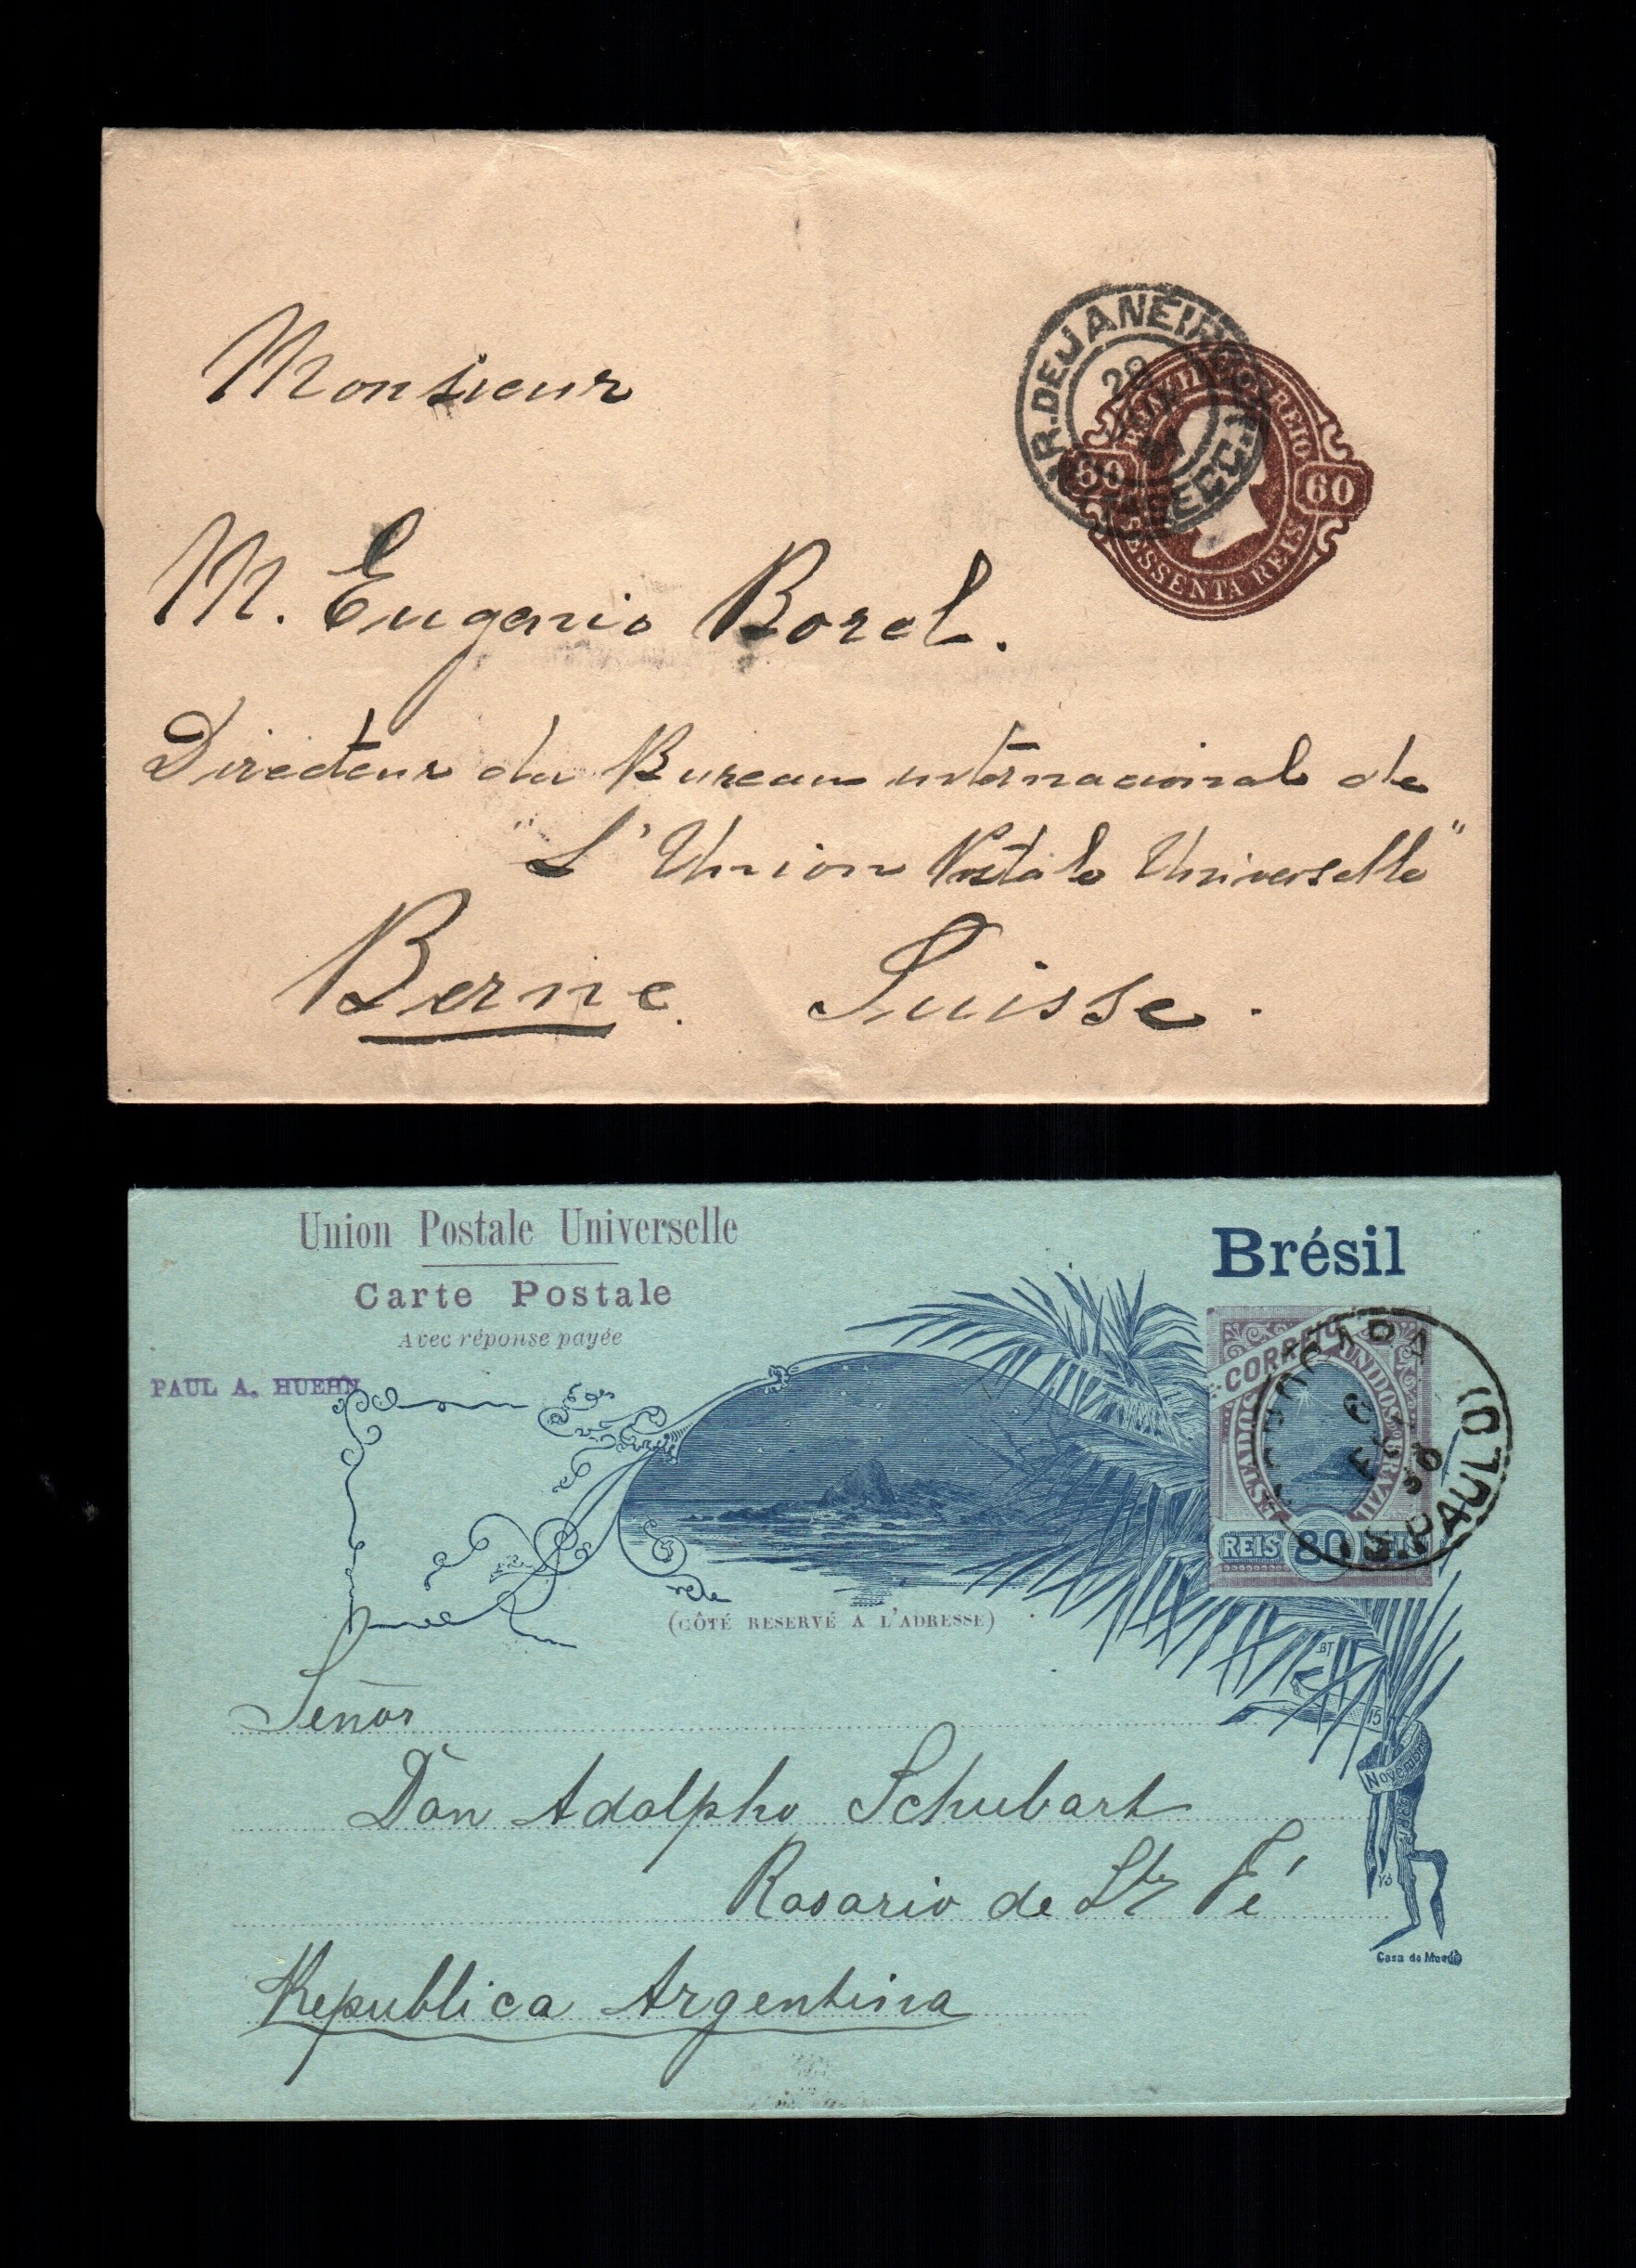 Monsieur
R. DE JANEIRO
28
60
60
CORREIO
SESSENTA REIS
M. Eugenio Borel.
Directeur du Bureau internacional de
"L'Union Postale Universelle"
Berne. Suisse.
Union Postale Universelle
Brésil
Carte Postale
Avec réponse payée
PAUL A. HUEHN
CORREIO
ESTADOS UNIDOS DO BRAZIL
REIS 80 REIS
S. PAULO)
(CÔTÉ RESERVÉ A L'ADRESSE)
BT
15
Novembro
Señor
Dòn Adolpho Schubart
Rosario de Sta Fé
Republica Argentina
Casa da Moeda